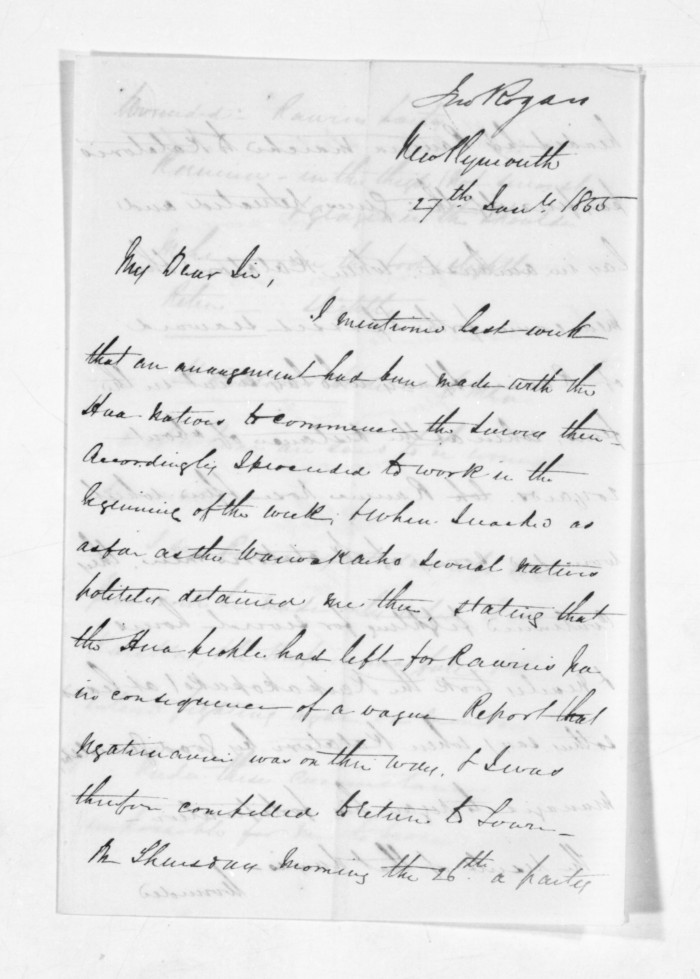 Jno Rogan
New Plymouth
27th Jany 1855
My Dear Sir,
I mentioned last week
that an arrangement had been made with the
Hua Natives to commence the survey there
Accordingly I proceeded to work in the
beginning of the week, & when I reached as
as far as the Waiwakaiho several natives
politely detained me there, stating that
the Hua people had left for Rawiri's Pa
in consequence of a vague Report that
Ngatimaru was on their way, & I was
therefore compelled to return to Town—
On Thursday Morning the 26th a party